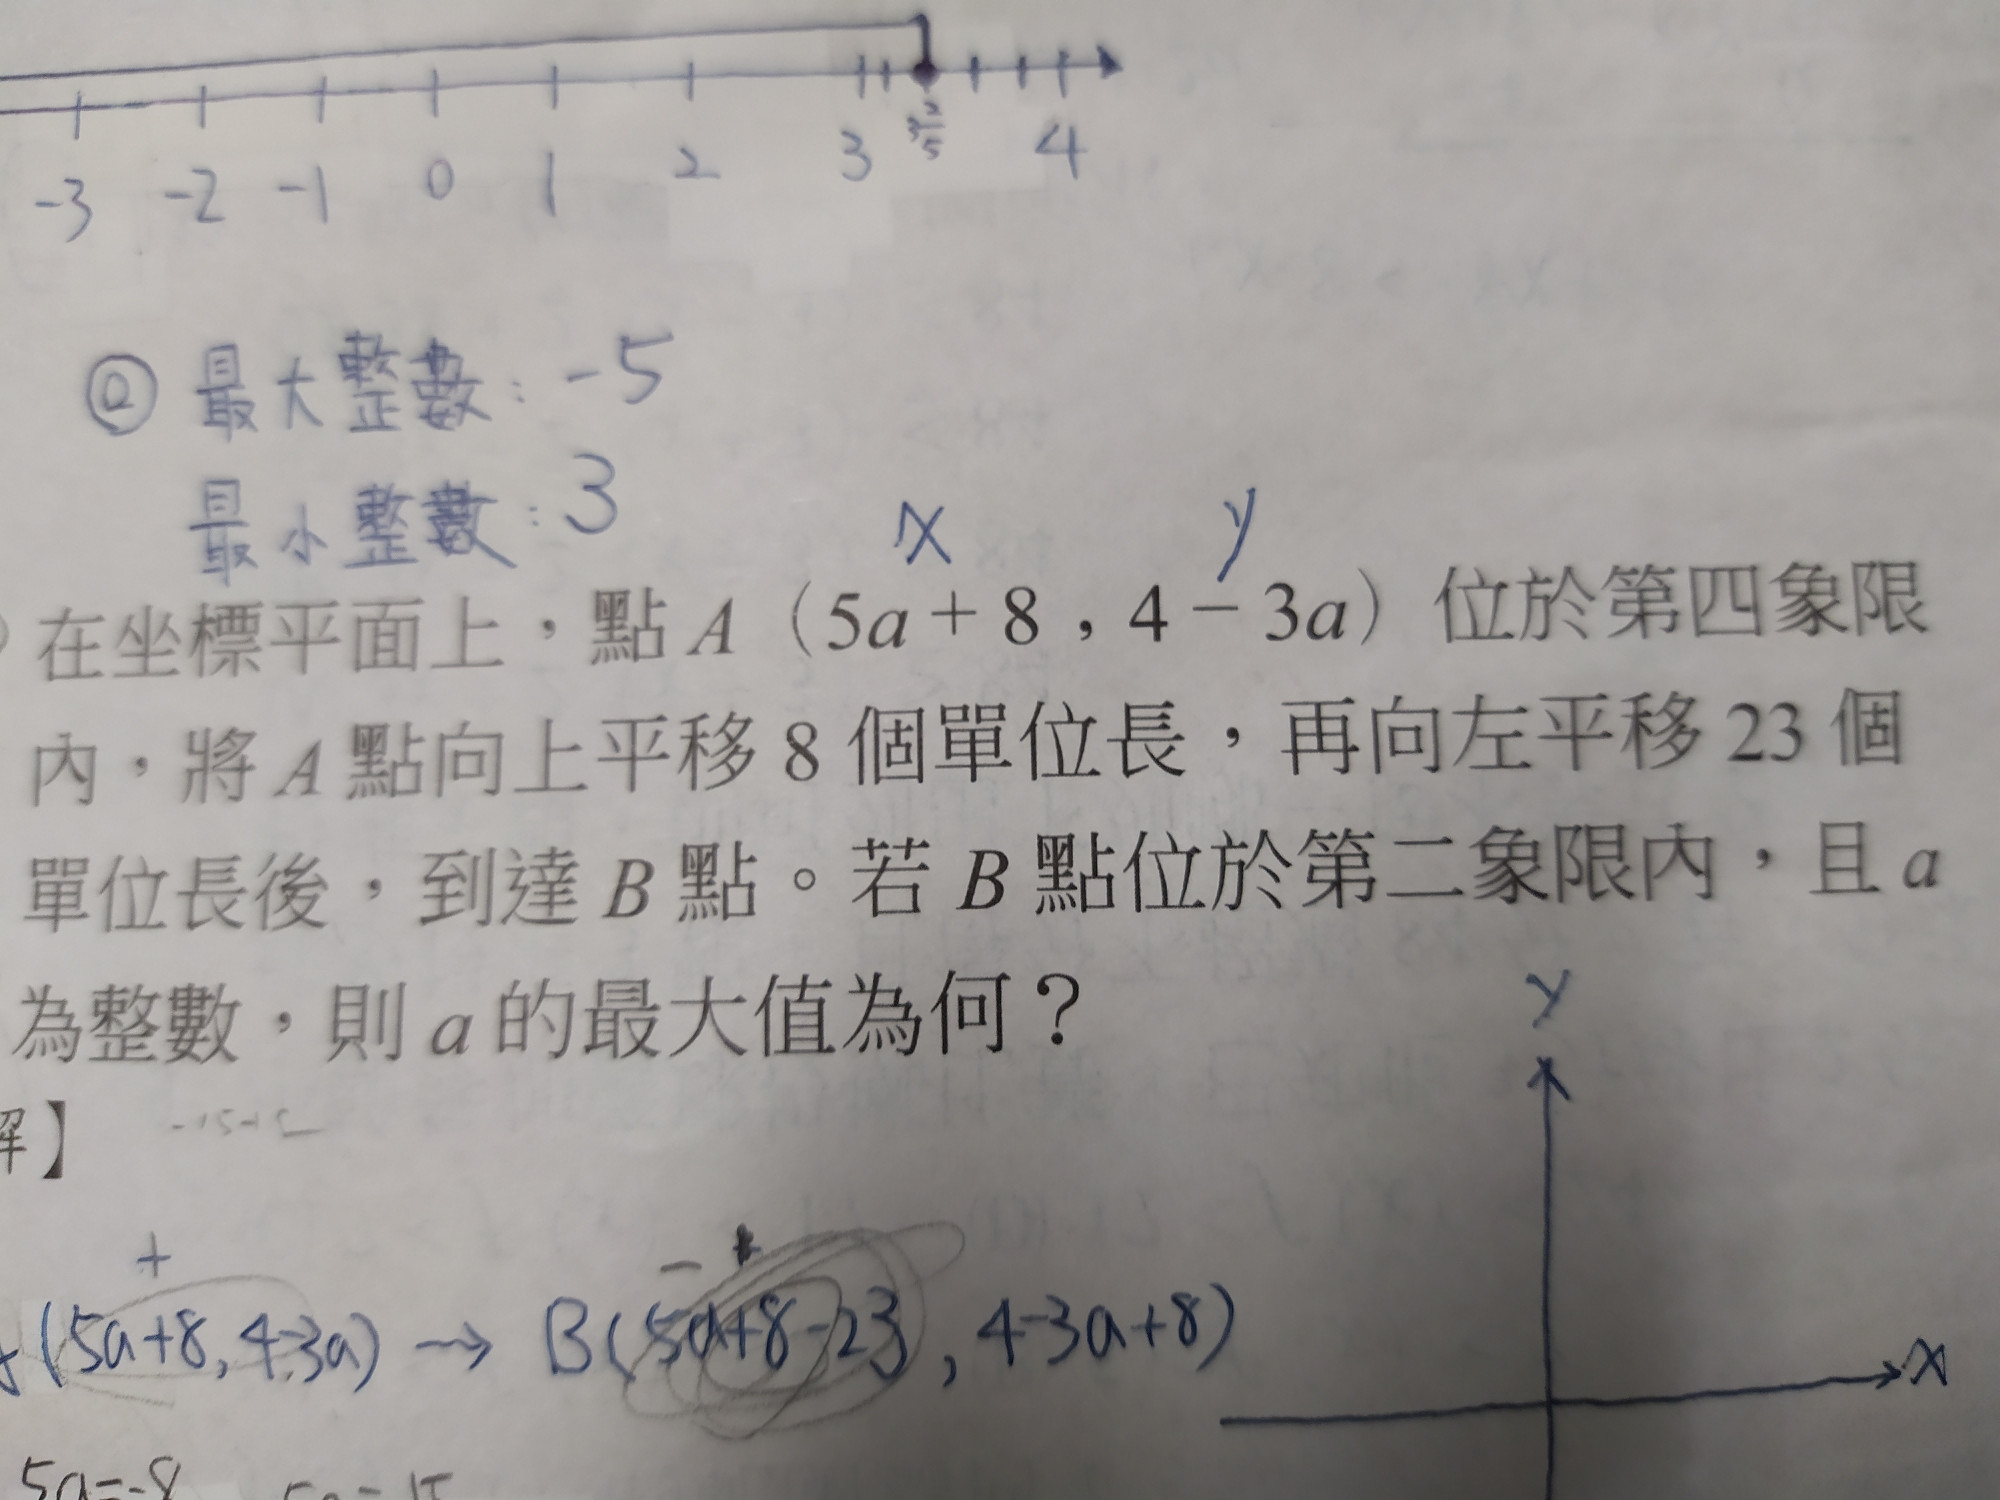 -3 -2 -1 0 1 2 3 3 2/5 4
② 最大整數：-5
最小整數：3
x y
在坐標平面上，點 A（5a＋8，4－3a）位於第四象限
內，將 A 點向上平移 8 個單位長，再向左平移 23 個
單位長後，到達 B 點。若 B 點位於第二象限內，且 a
為整數，則 a 的最大值為何？
y
解】
+ -
(5a+8, 4-3a) → B(5a+8-23, 4-3a+8)
x
5a=-8